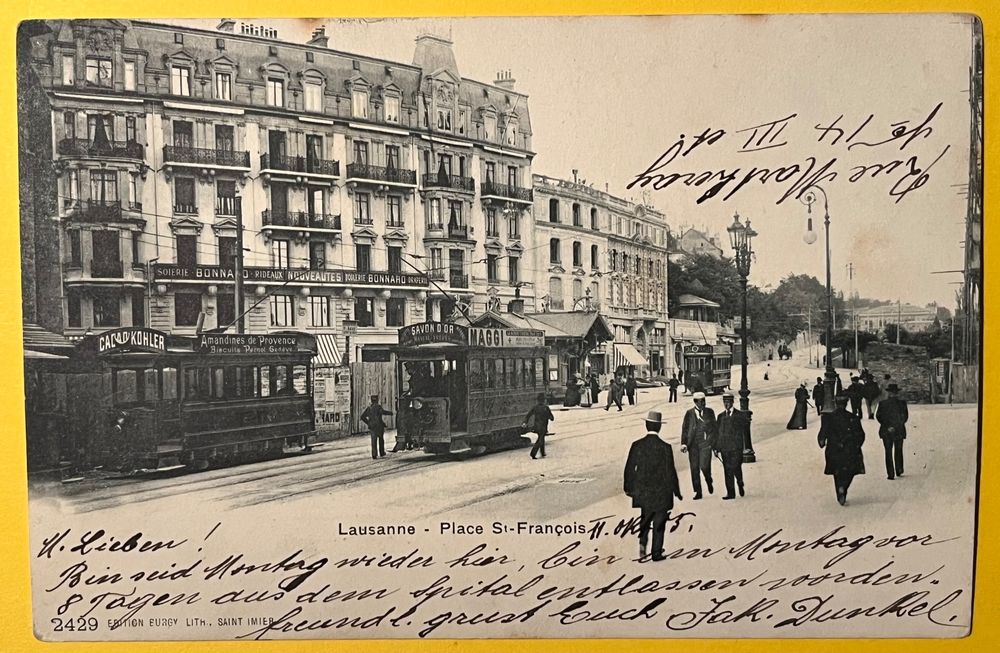 SOIERIE - BONNARD - RIDEAUX NOUVEAUTES TOILERIE BONNARD DRAPERIE
CACAO KOHLER
Amandines de Provence
Biscuits Pernot Genève
SAVON D'OR
MAGGI
Rue
Nº 14 III
Lausanne - Place St-François
11. Okt. 05.
M. Lieben!
Bin seid Montag wieder hier, bin am Montag vor
8 Tagen aus dem Spital entlassen worden.
freundl. grüst Euch Jak. Dunkel.
2429 EDITION BURGY LITH., SAINT IMIER